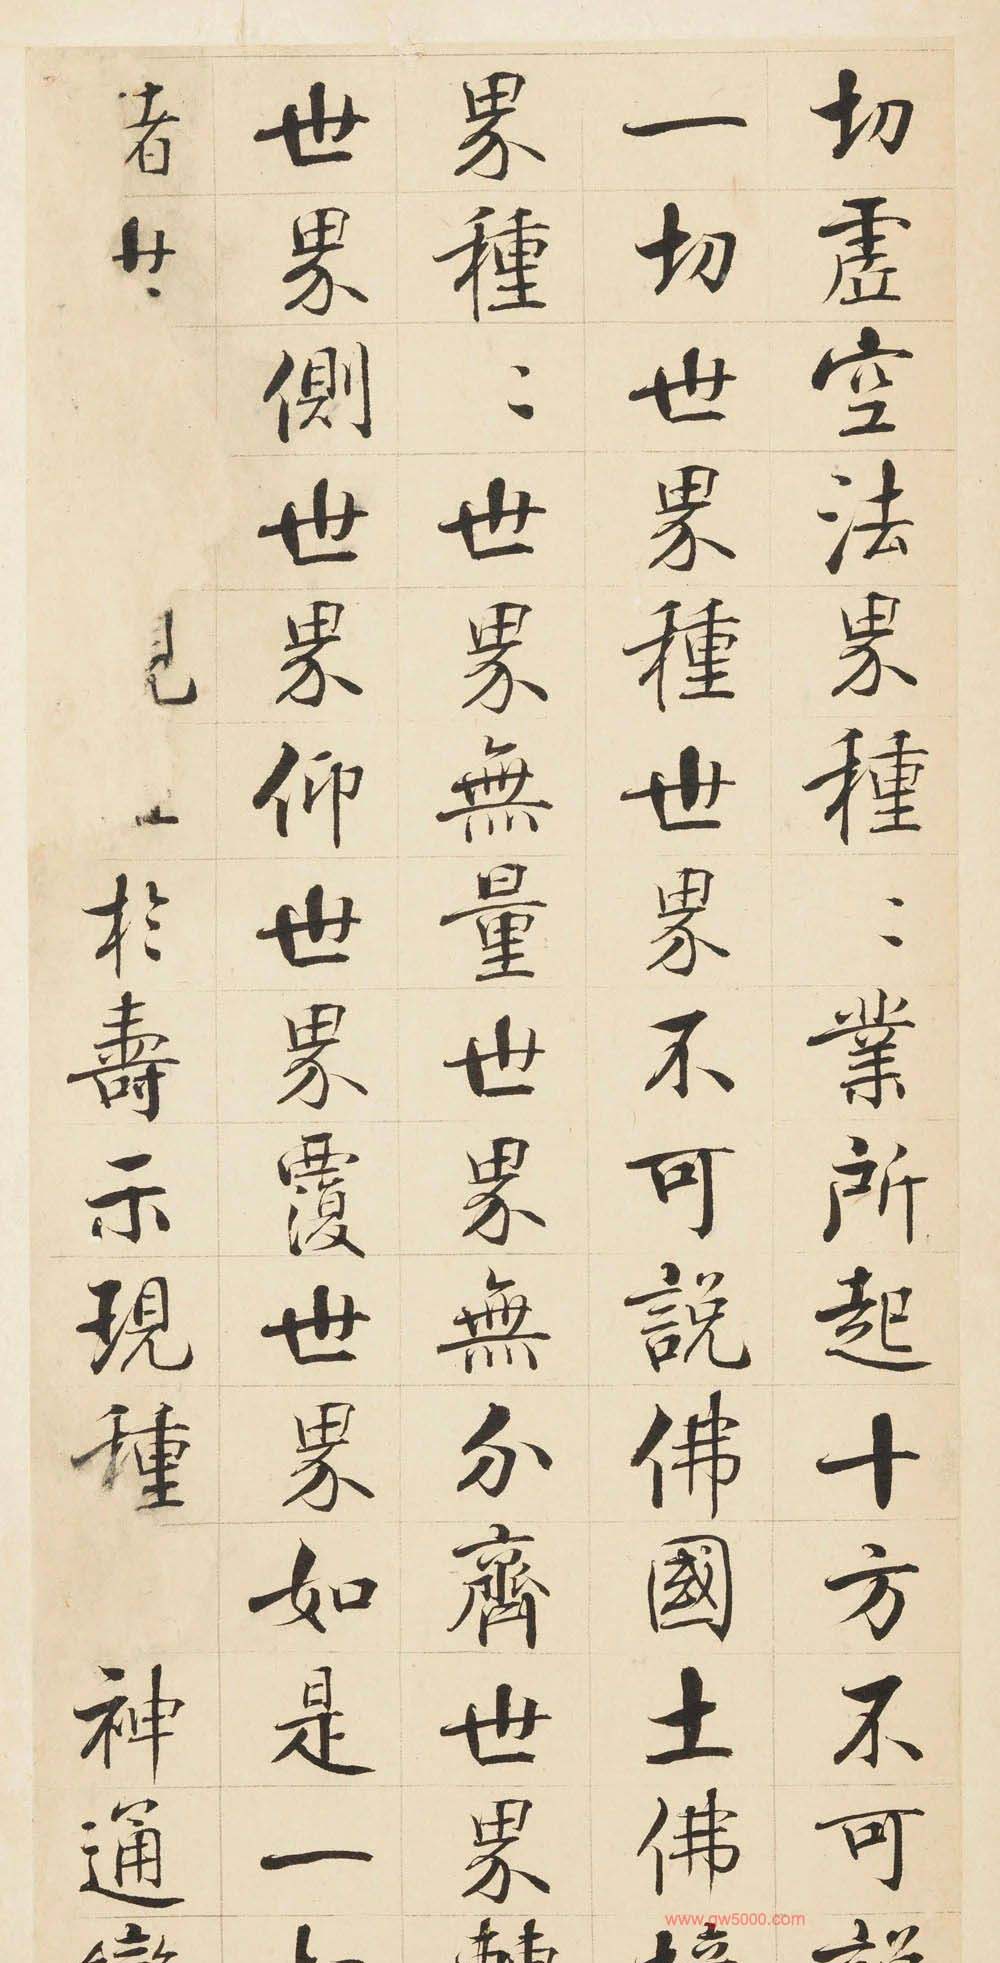 切虛空法界種〻業所起十方不可說
一切世界種世界不可說佛國土佛境
界種〻世界無量世界無分齊世界轉
世界側世界仰世界覆世界如是一
者於壽示現種神通
www.gw5000.com